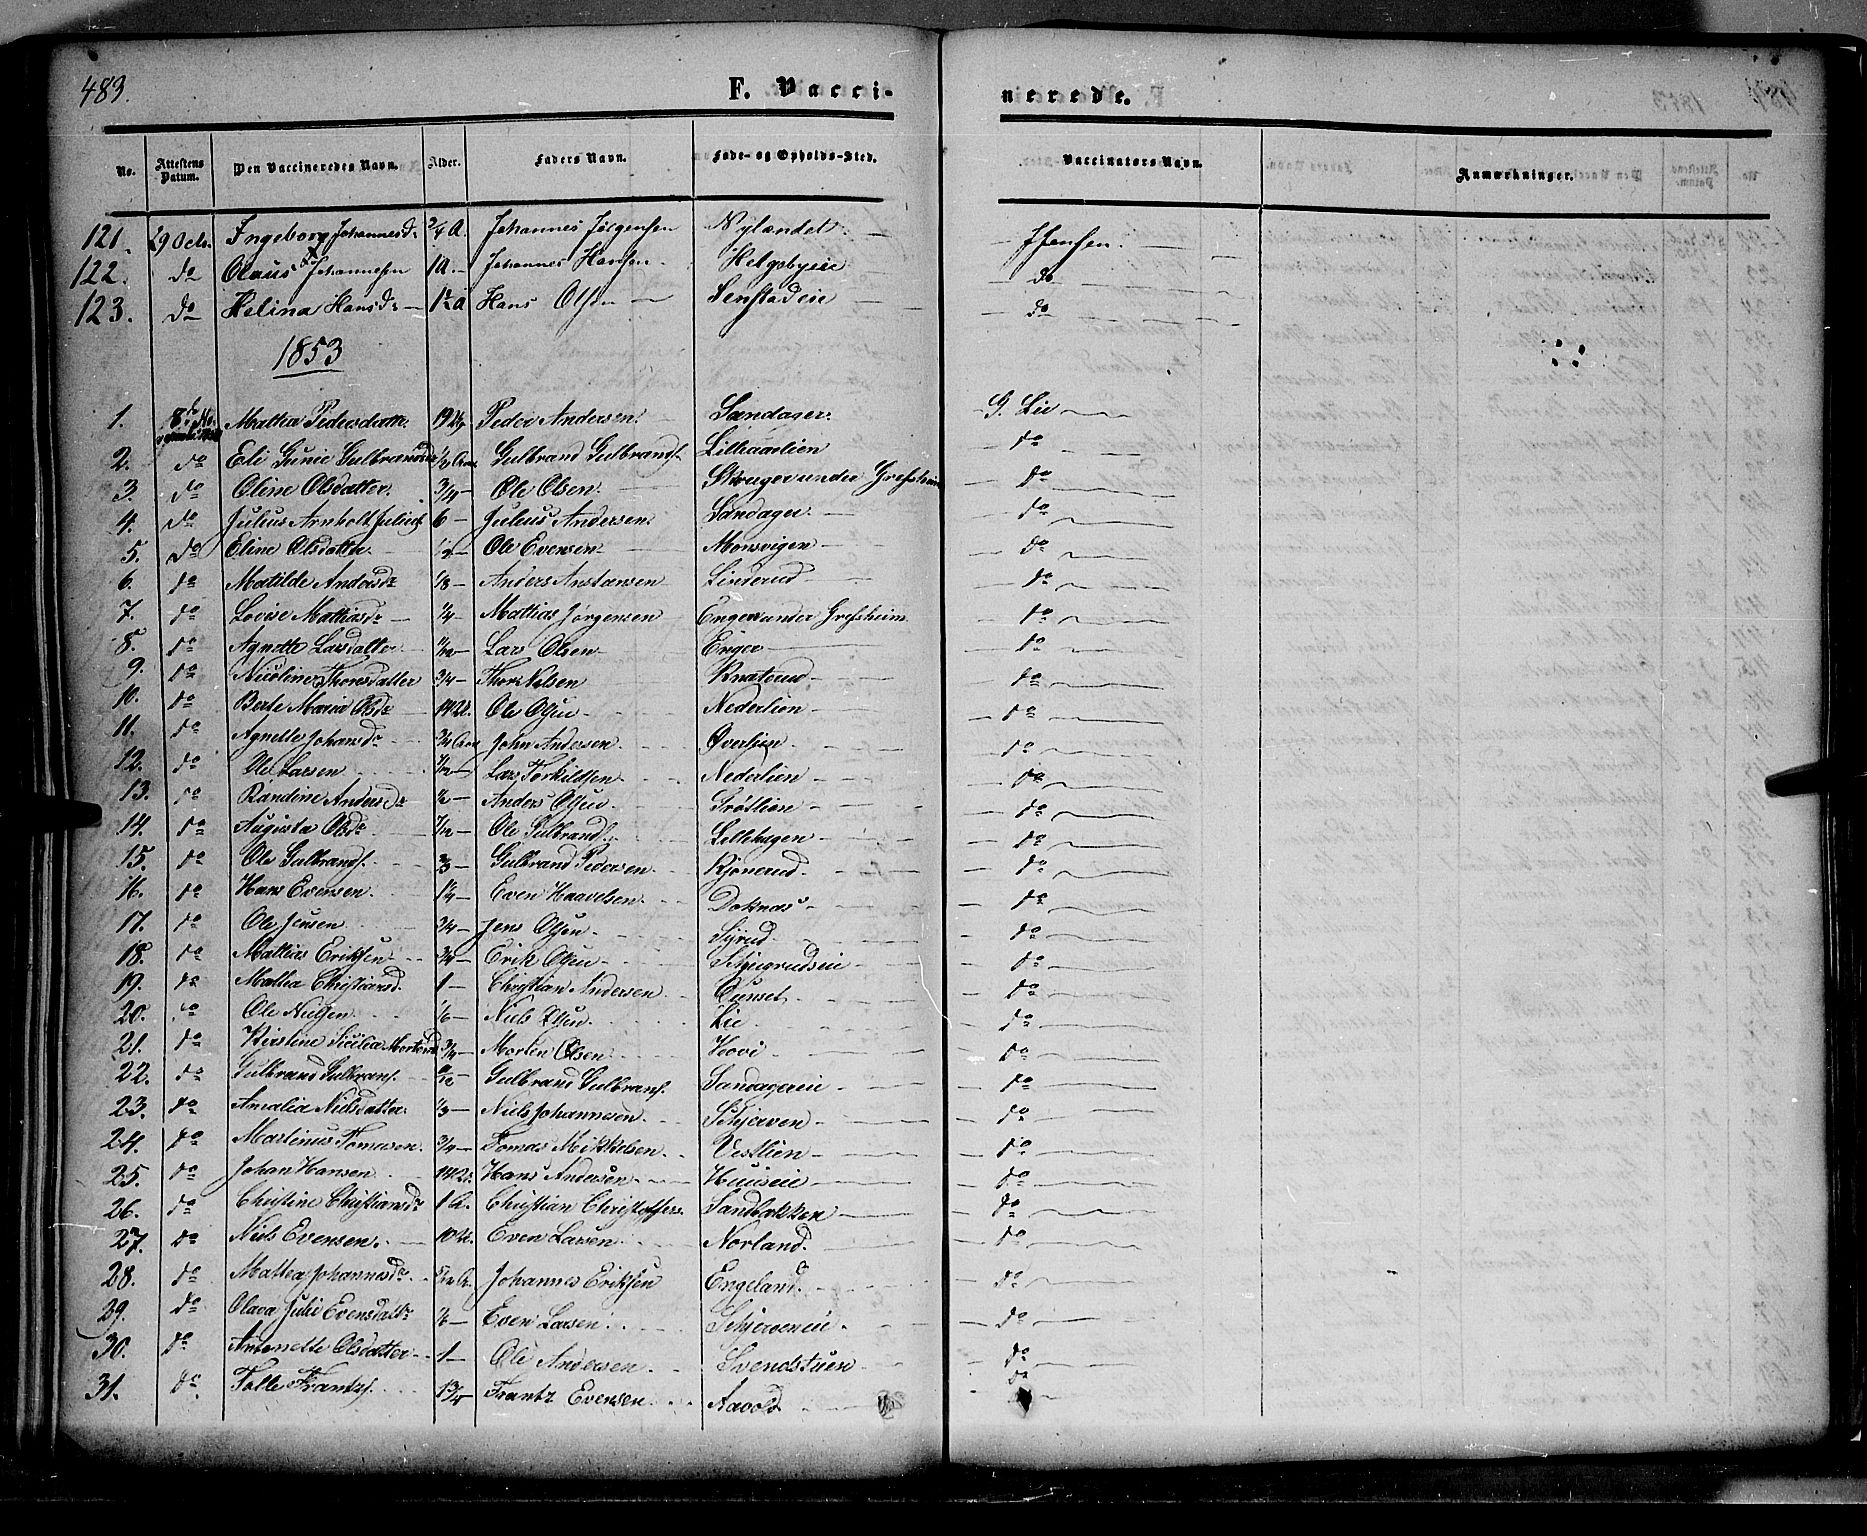 483.
F. Vacci-
nerede.
No. Attestens Datum. Den Vaccineredes Navn. Alder. Faders Navn. Føde- og Opholds-Sted. Vaccinators Navn. Anmærkninger.
121. 29 Octr. Ingeborg Johannesdr 3/4 A. Johannes Jørgensen Nylandet J Jensen.
122. do Olaus Johannesen 1 A. Johannes Hansen Helgebyeie do
123. do Helina Hansdr 1½ A Hans Olsen Senstadeie do
1853
1. Mathia Pedersdatter Peder Andersen. Sandager. G. Lie
2. do Eli Gunie Gulbrandsdr Gulbrand Gulbrands. Lillhaarlien do
3. do Oline Olsdatter. 3/4 Ole Olsen. under Grefsheim do
4. do Julius Arnholt Julius. 6 Julius Andersen. Sandager do
5. do Eline Olsdatter 1/2 Ole Evensen Monsvigen do
6. do Matilde Andersdr 1/3 Anders Anstensen Linderud do
7. do Lovise Mathiasdr 1/4 Mathias Jørgensen Enger under Grefsheim do
8. do Agnethe Larsdatter Lars Olsen Enger do
9. do Nicoline Thorsdatter 3/4 Thor Nilsen Knaterud do
10. do Berte Maria Olsdr 14 U. Ole Olsen Nederlien do
11. do Agnette Johansdr 3/4 John Andersen. Øverlien do
12. do Ole Larsen 7/12 Lars Torkildsen Nederlien do
13. do Randine Andersdr 1/2 Anders Olsen Trøtlien do
14. do Augusta Olsdr 7/12 Ole Gulbrands. Lillehagen do
15. do Ole Gulbrands. 2/3 Gulbrand Pedersen Kjønerud do
16. do Hans Evensen. 1 1/4 Even Haavelsen Doknæs do
17. do Ole Jensen 3/4 Jens Olsen do
18. do Mathias Eriksen 3/4 Erik Olsen do
19. do Mathea Christiansd. 1 Christian Andersen do
20. do Ole Nilsen 1/6 Niels Olsen. Lie do
21. do Kirstine Sicilia Mortensd 3/4 Morten Olsen do
22. do Gulbrand Gulbrans. Gulbrand Gulbrans. Sandagereie do
23. do Amalia Nielsdatter 1/3 Niels Johannesen Schjerven do
24. do Martinus Tomasen. 3/4 Tomas Mikkelsen Vestlien do
25. do Johan Hansen 14 U. Hans Andersen do
26. do Christine Christiansdr 1 A. Christian Christoffers. Sandbakken do
27. do Niels Evensen. 10 U. Even Larsen Norland. do
28. do Mathea Johannesdr Johannes Eriksen Engeland. do
29. do Olava Julie Evensdatr 1/6 Even Larsen Schjerveneie. do
30. do Antonette Olsdatter 1 Ole Andersen Svendstuen do
31. do Tolle Frantzs. 1 3/4 Frantz Evensen Aavold do